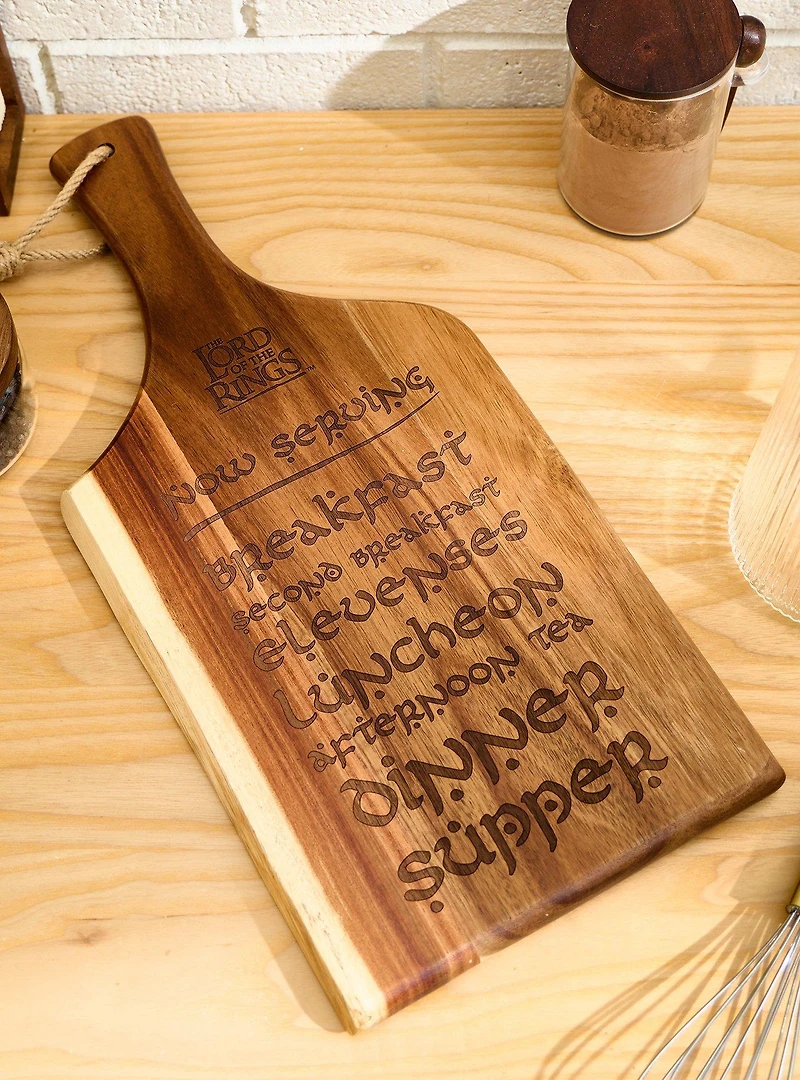 THE
LORD
OF THE
RINGS™
NOW SERVING
BREAKFAST
SECOND BREAKFAST
ELEVENSES
LUNCHEON
AFTERNOON TEA
DINNER
SUPPER